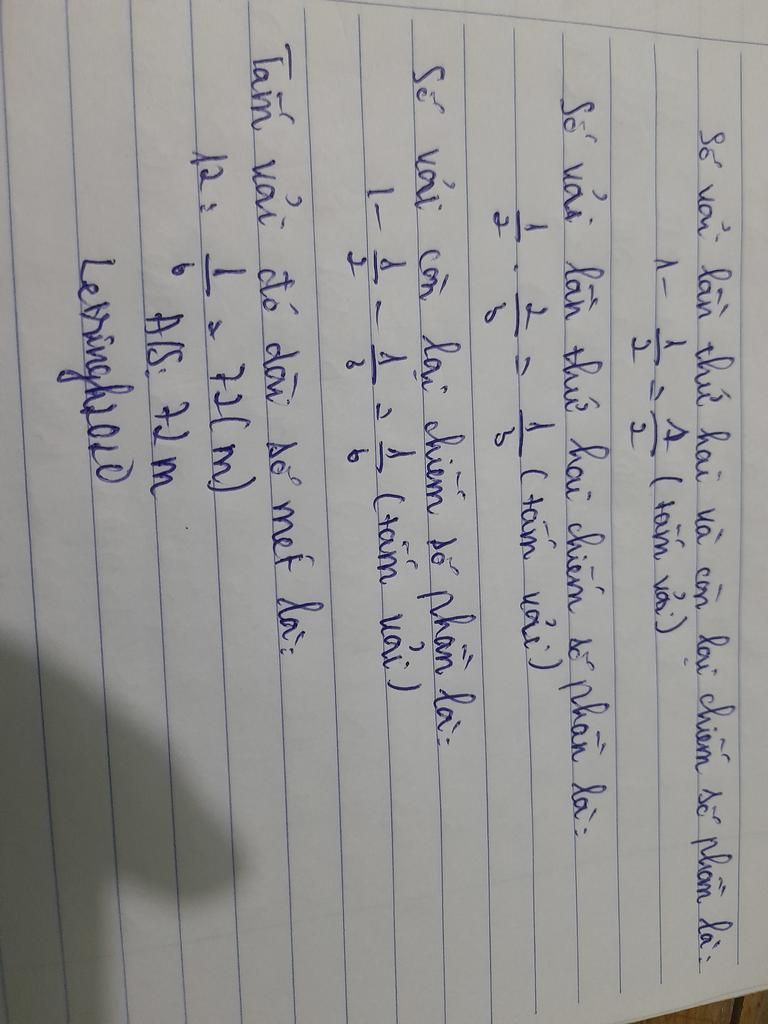 Số vải lần thứ hai và còn lại chiếm số phần là:
1 - 1/2 = 1/2 (tấm vải)
Số vải lần thứ hai chiếm số phần là:
1/2 . 2/3 = 1/3 (tấm vải)
Số vải còn lại chiếm số phần là:
1 - 1/2 - 1/3 = 1/6 (tấm vải)
Tấm vải đó dài số mét là:
12 : 1/6 = 72 (m)
Đ/S: 72 m